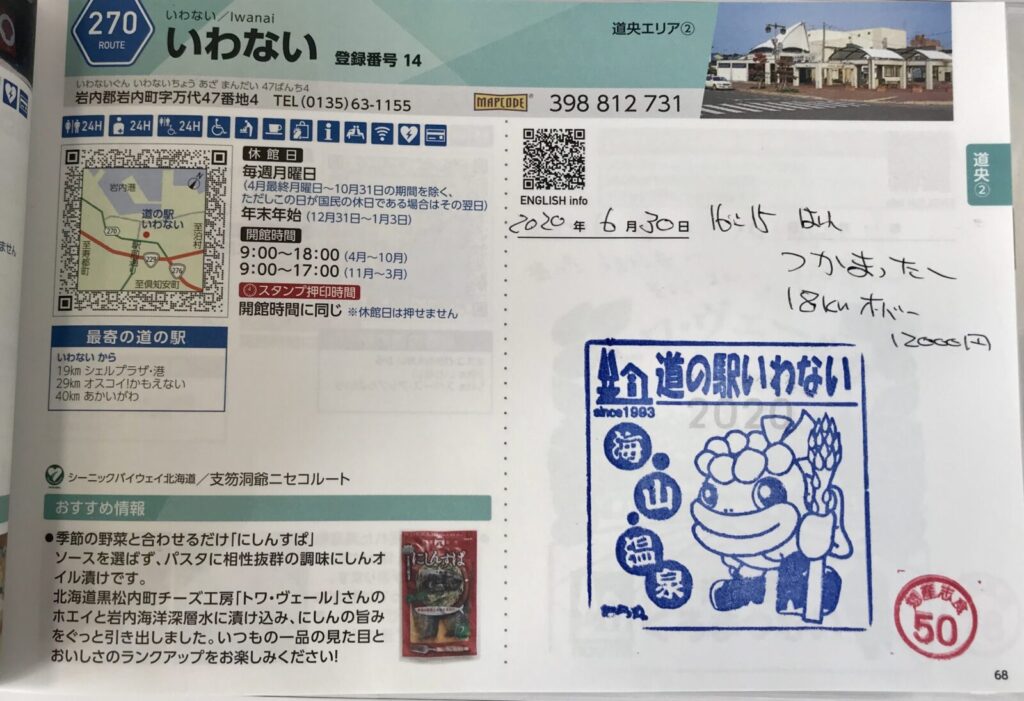 270
ROUTE
いわない／Iwanai
いわない 登録番号 14
道央エリア②
いわないぐん いわないちょう あざ まんだい 47ばんち4
岩内郡岩内町字万代47番地4 TEL(0135)63-1155
MAPCODE® 398 812 731
24H 24H 24H
岩内港
道の駅
いわない
至泊村
270
229
276
至寿都町
至倶知安町
休館日
毎週月曜日
(4月最終月曜日～10月31日の期間を除く、
ただしこの日が国民の休日である場合はその翌日)
年末年始 (12月31日～1月3日)
開館時間
9:00～18:00 (4月～10月)
9:00～17:00 (11月～3月)
スタンプ押印時間
開館時間に同じ ※休館日は押せません
最寄の道の駅
いわない から
19km シェルプラザ・港
29km オスコイ!かもえない
40km あかいがわ
シーニックバイウェイ北海道／支笏洞爺ニセコルート
おすすめ情報
●季節の野菜と合わせるだけ「にしんすぱ」
ソースを選ばず、パスタに相性抜群の調味にしんオ
イル漬けです。
北海道黒松内町チーズ工房「トワ・ヴェール」さんの
ホエイと岩内海洋深層水に漬け込み、にしんの旨み
をぐっと引き出しました。いつもの一品の見た目と
おいしさのランクアップをお楽しみください!
にしんすぱ
ENGLISH info
道央②
2020年 6月30日 16:15 はれ
つかまったー
18km オーバー
12000円
道の駅いわない
since1993
2020
海・山・温泉
50
68